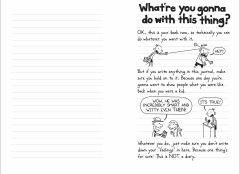 What're you gonna
do with this thing?
OK, this is your book now, so technically you can
do whatever you want with it.
HEY!
But if you write anything in this journal, make
sure you hold on to it. Because one day you're
gonna want to show people what you were like
back when you were a kid.
WOW, HE WAS
INCREDIBLY SMART AND
WITTY EVEN THEN!
IT'S TRUE!
Whatever you do, just make sure you don't write
down your "feelings" in here. Because one thing's
for sure: This is NOT a diary.